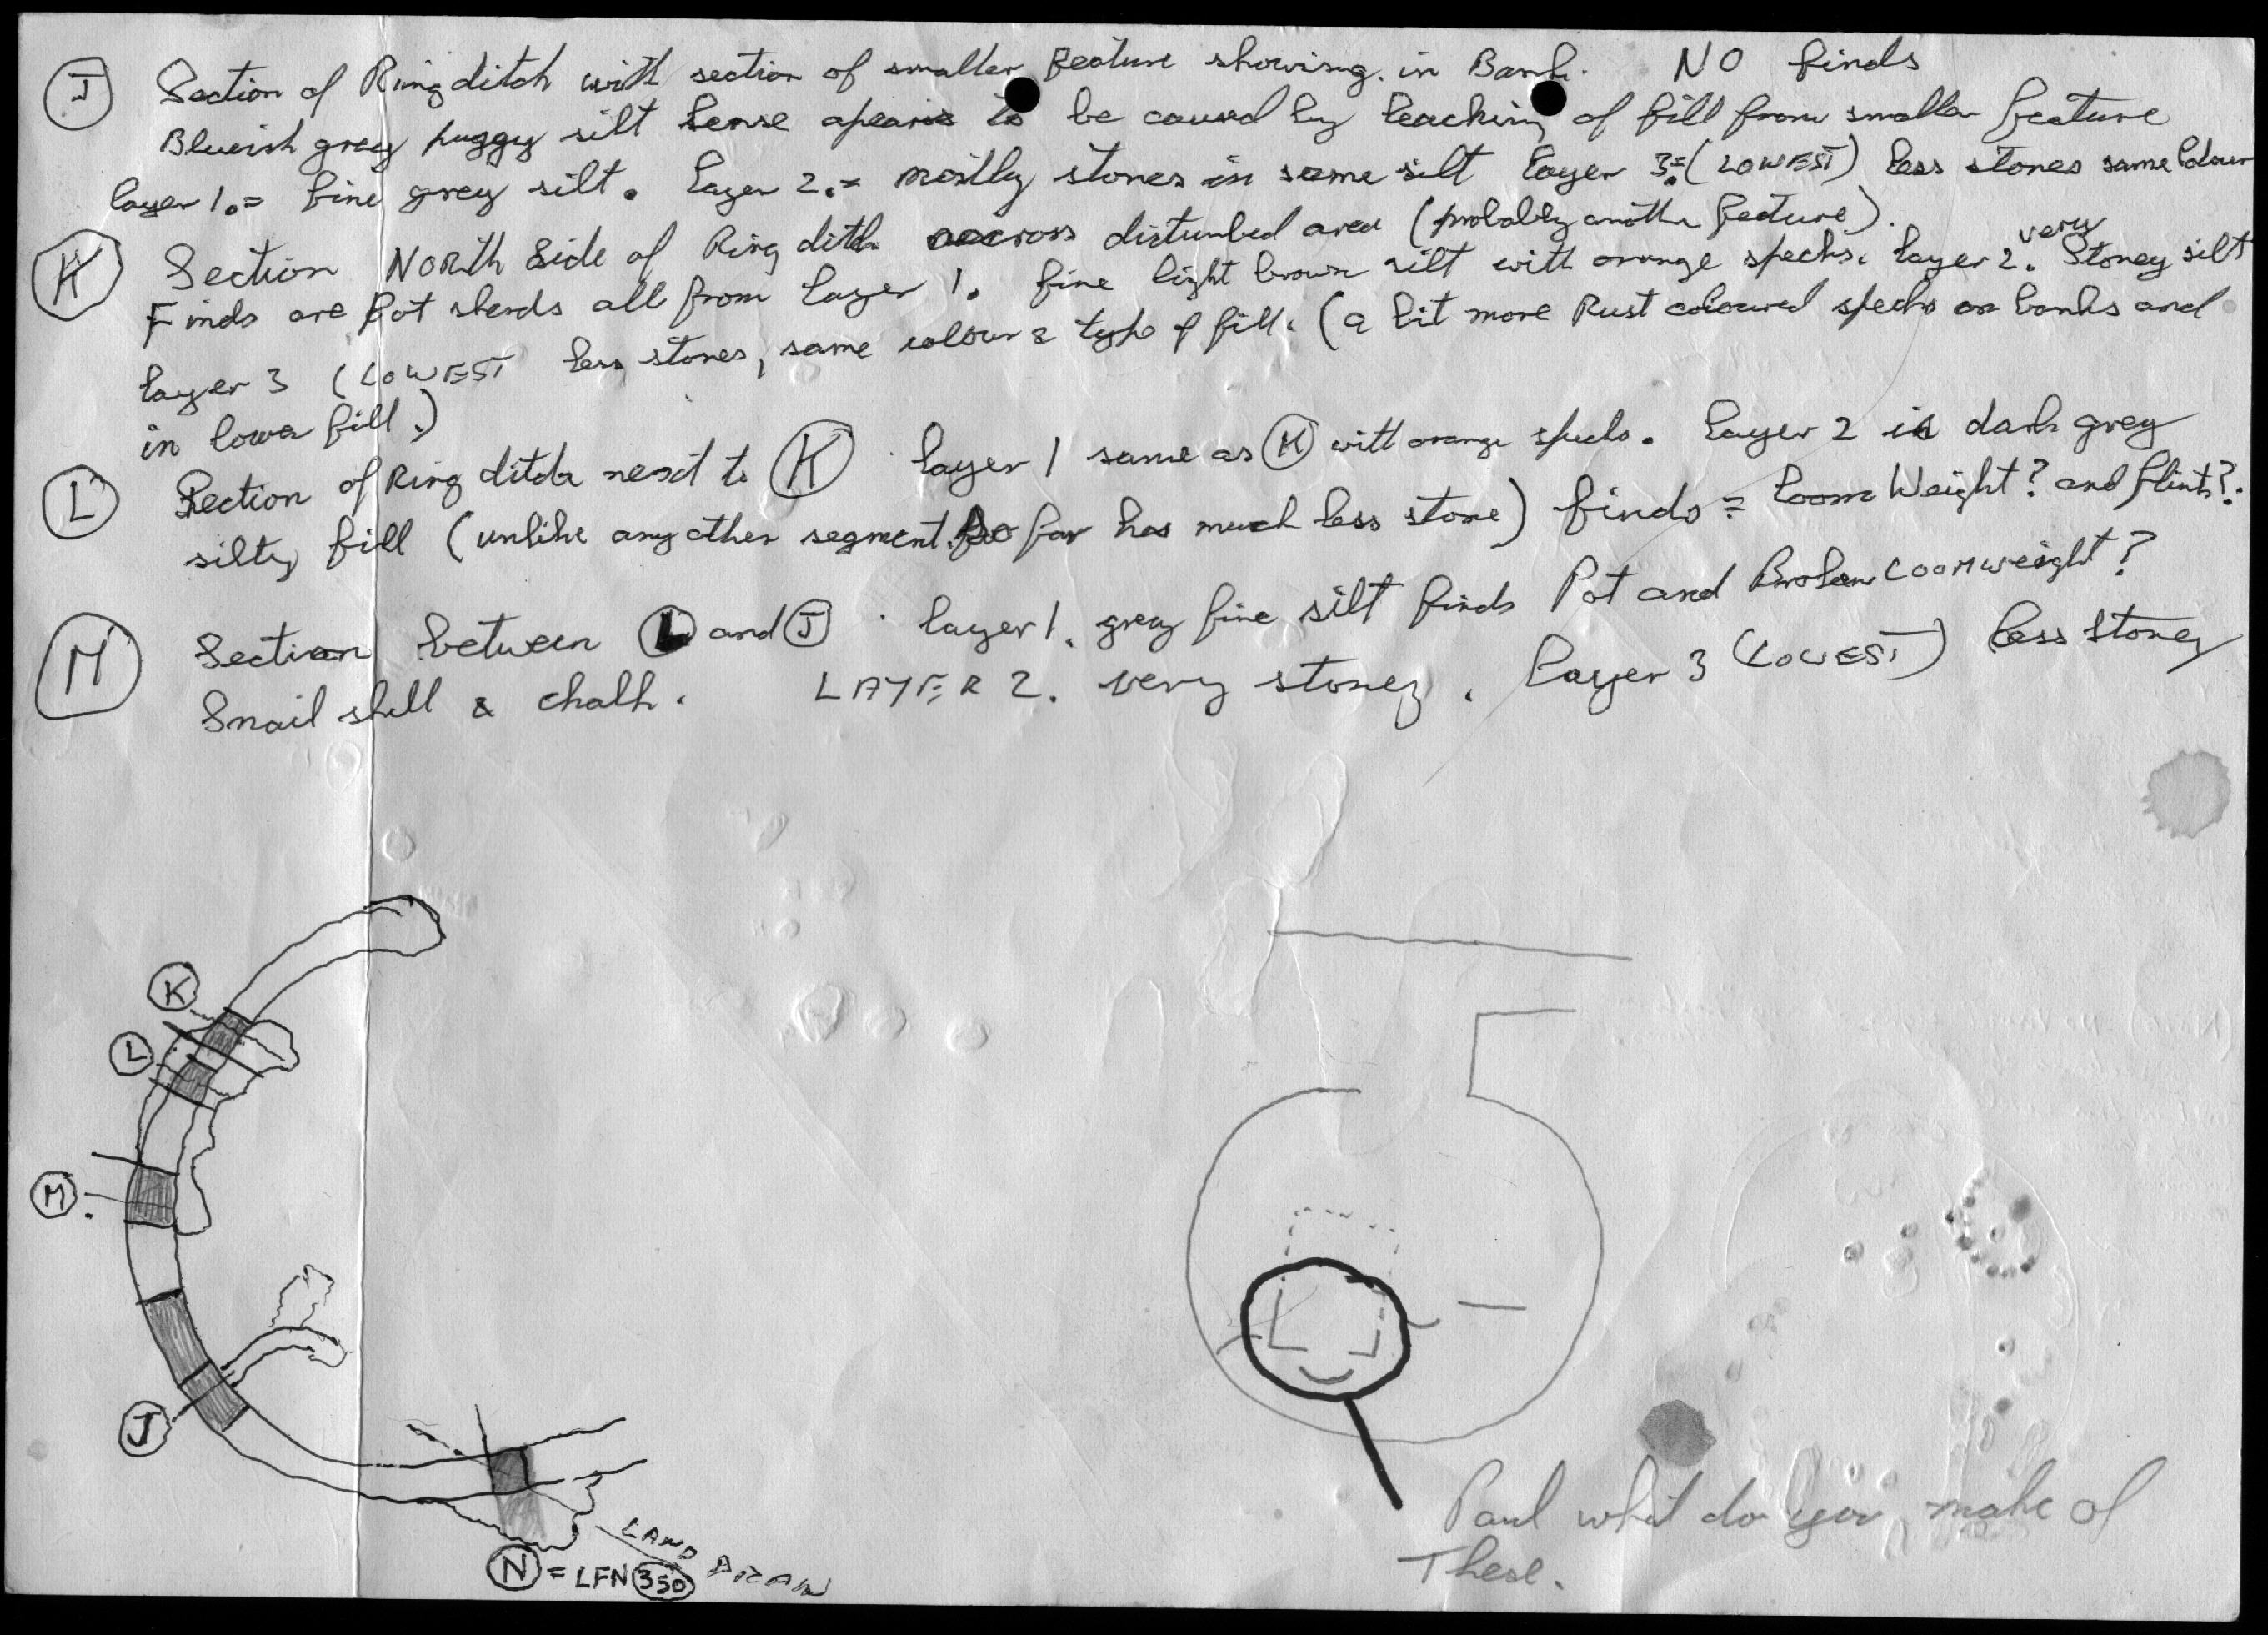 J Section of Ring ditch with section of smaller feature showing. in Bank. NO finds
Blueish grey puggy silt lense apears to be caused by leaching of fill from smaller feature
layer 1. = fine grey silt. layer 2. = mostly stones in same silt layer 3 = (LOWEST) less stones same colour
K Section NORTH Side of Ring ditch across disturbed area (probably another feature).
Finds are Pot sherds all from layer 1. fine light brown silt with orange specks. layer 2. very Stoney silt
layer 3 (LOWEST less stones, same colour & type of fill. (a bit more Rust coloured specks on banks and
in lower fill.)
L Section of Ring ditch next to K layer 1 same as K with orange specks. layer 2 is dark grey
silty fill (unlike any other segment so far has much less stone) finds = Loom Weight? and flints?.
M Section between L and J. layer 1. grey fine silt finds Pot and Broken LOOMweight?
Snail shell & chalk. LAYER 2. very stoney. layer 3 (LOWEST) less stoney
K
L
M.
J
N = LFN 350
LAND DRAIN
Paul what do you make of
These.